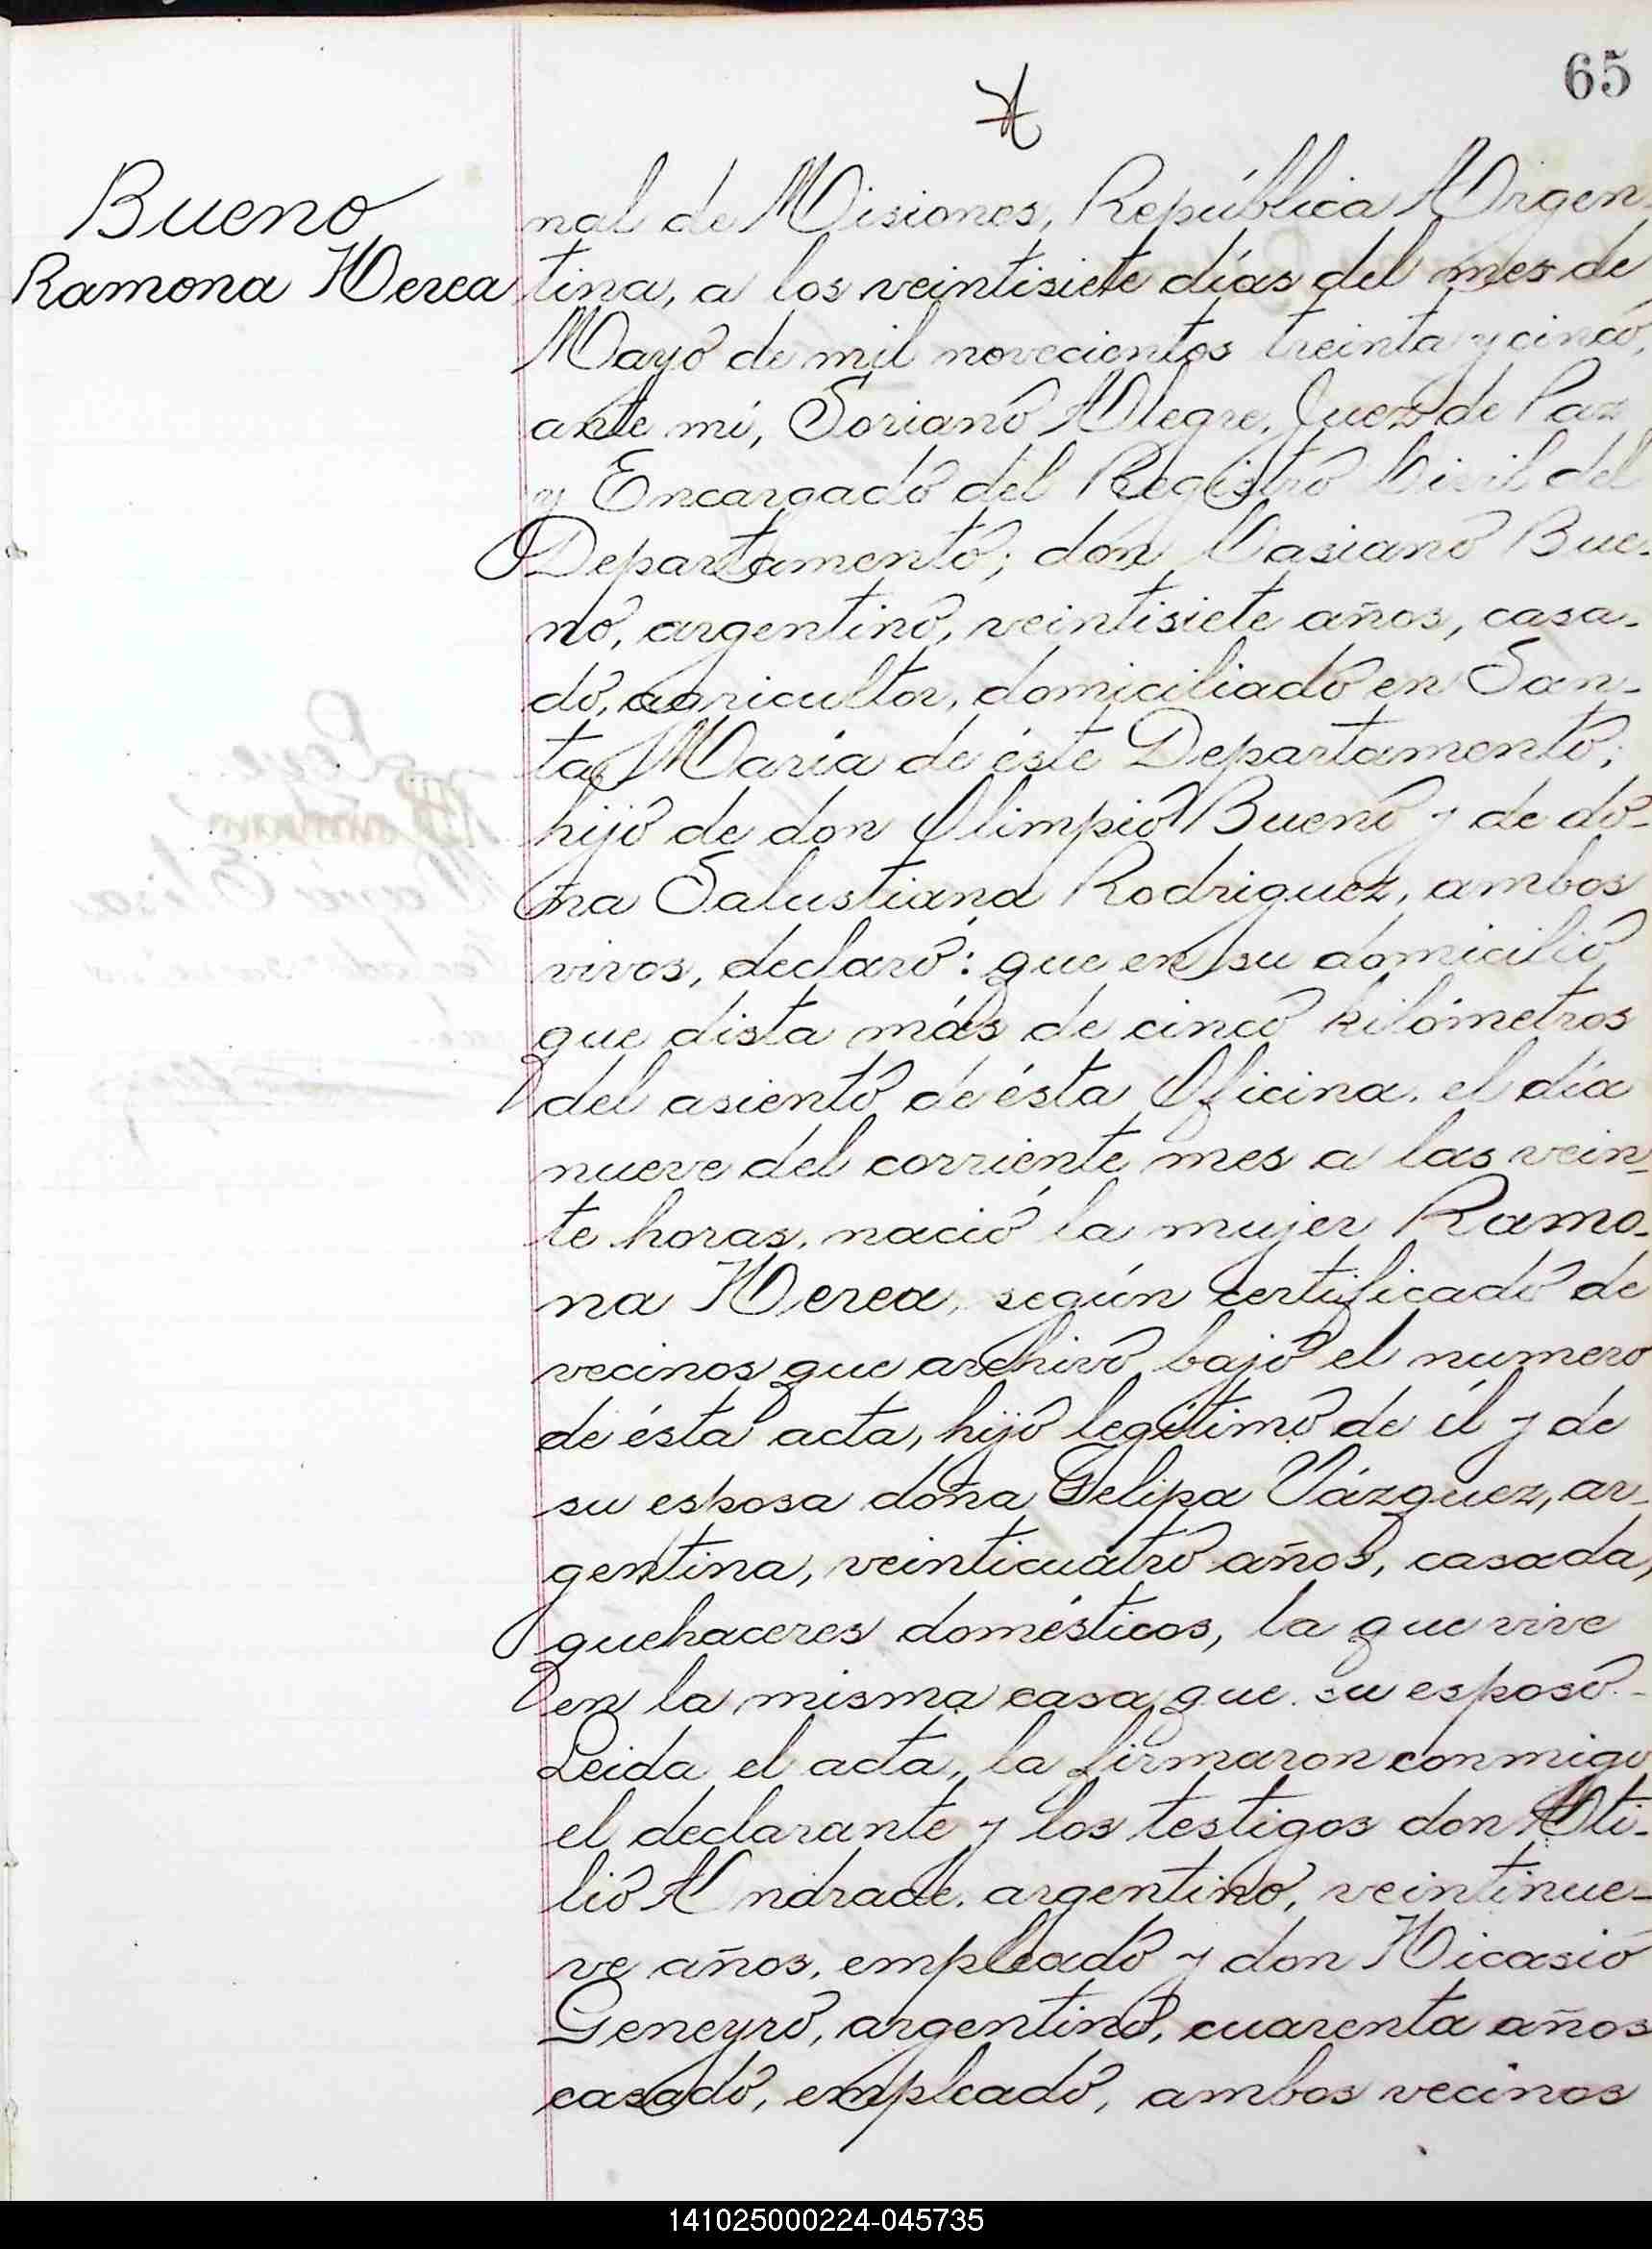 65
Bueno
Ramona Nerea
nal de Misiones, República Argen-
tina, a los veintisiete días del mes de
Mayo de mil novecientos treinta y cinco,
ante mí, Soriano Alegre, Juez de Paz
y Encargado del Registro Civil del
Departamento; don Casiano Bue-
no, argentino, veintisiete años, casa-
do, agricultor, domiciliado en San-
ta María de éste Departamento;
hijo de don Olimpio Bueno y de do-
ña Salustiana Rodriguez, ambos
vivos, declaró: que en su domicilio
que dista más de cinco kilómetros
del asiento de ésta Oficina, el día
nueve del corriente mes a las vein-
te horas, nació la mujer Ramo-
na Nerea, según certificado de
vecinos que archivo bajo el numero
de ésta acta, hijo legítimo de él y de
su esposa doña Felipa Vázquez, ar-
gentina, veinticuatro años, casada,
quehaceres domésticos, la que vive
en la misma casa que su esposo.-
Leida el acta, la firmaron conmigo
el declarante y los testigos don Oti-
lio Andrade, argentino, veintinue-
ve años, empleado y don Nicasio
Geneyro, argentino, cuarenta años
casado, empleado, ambos vecinos
141025000224-045735